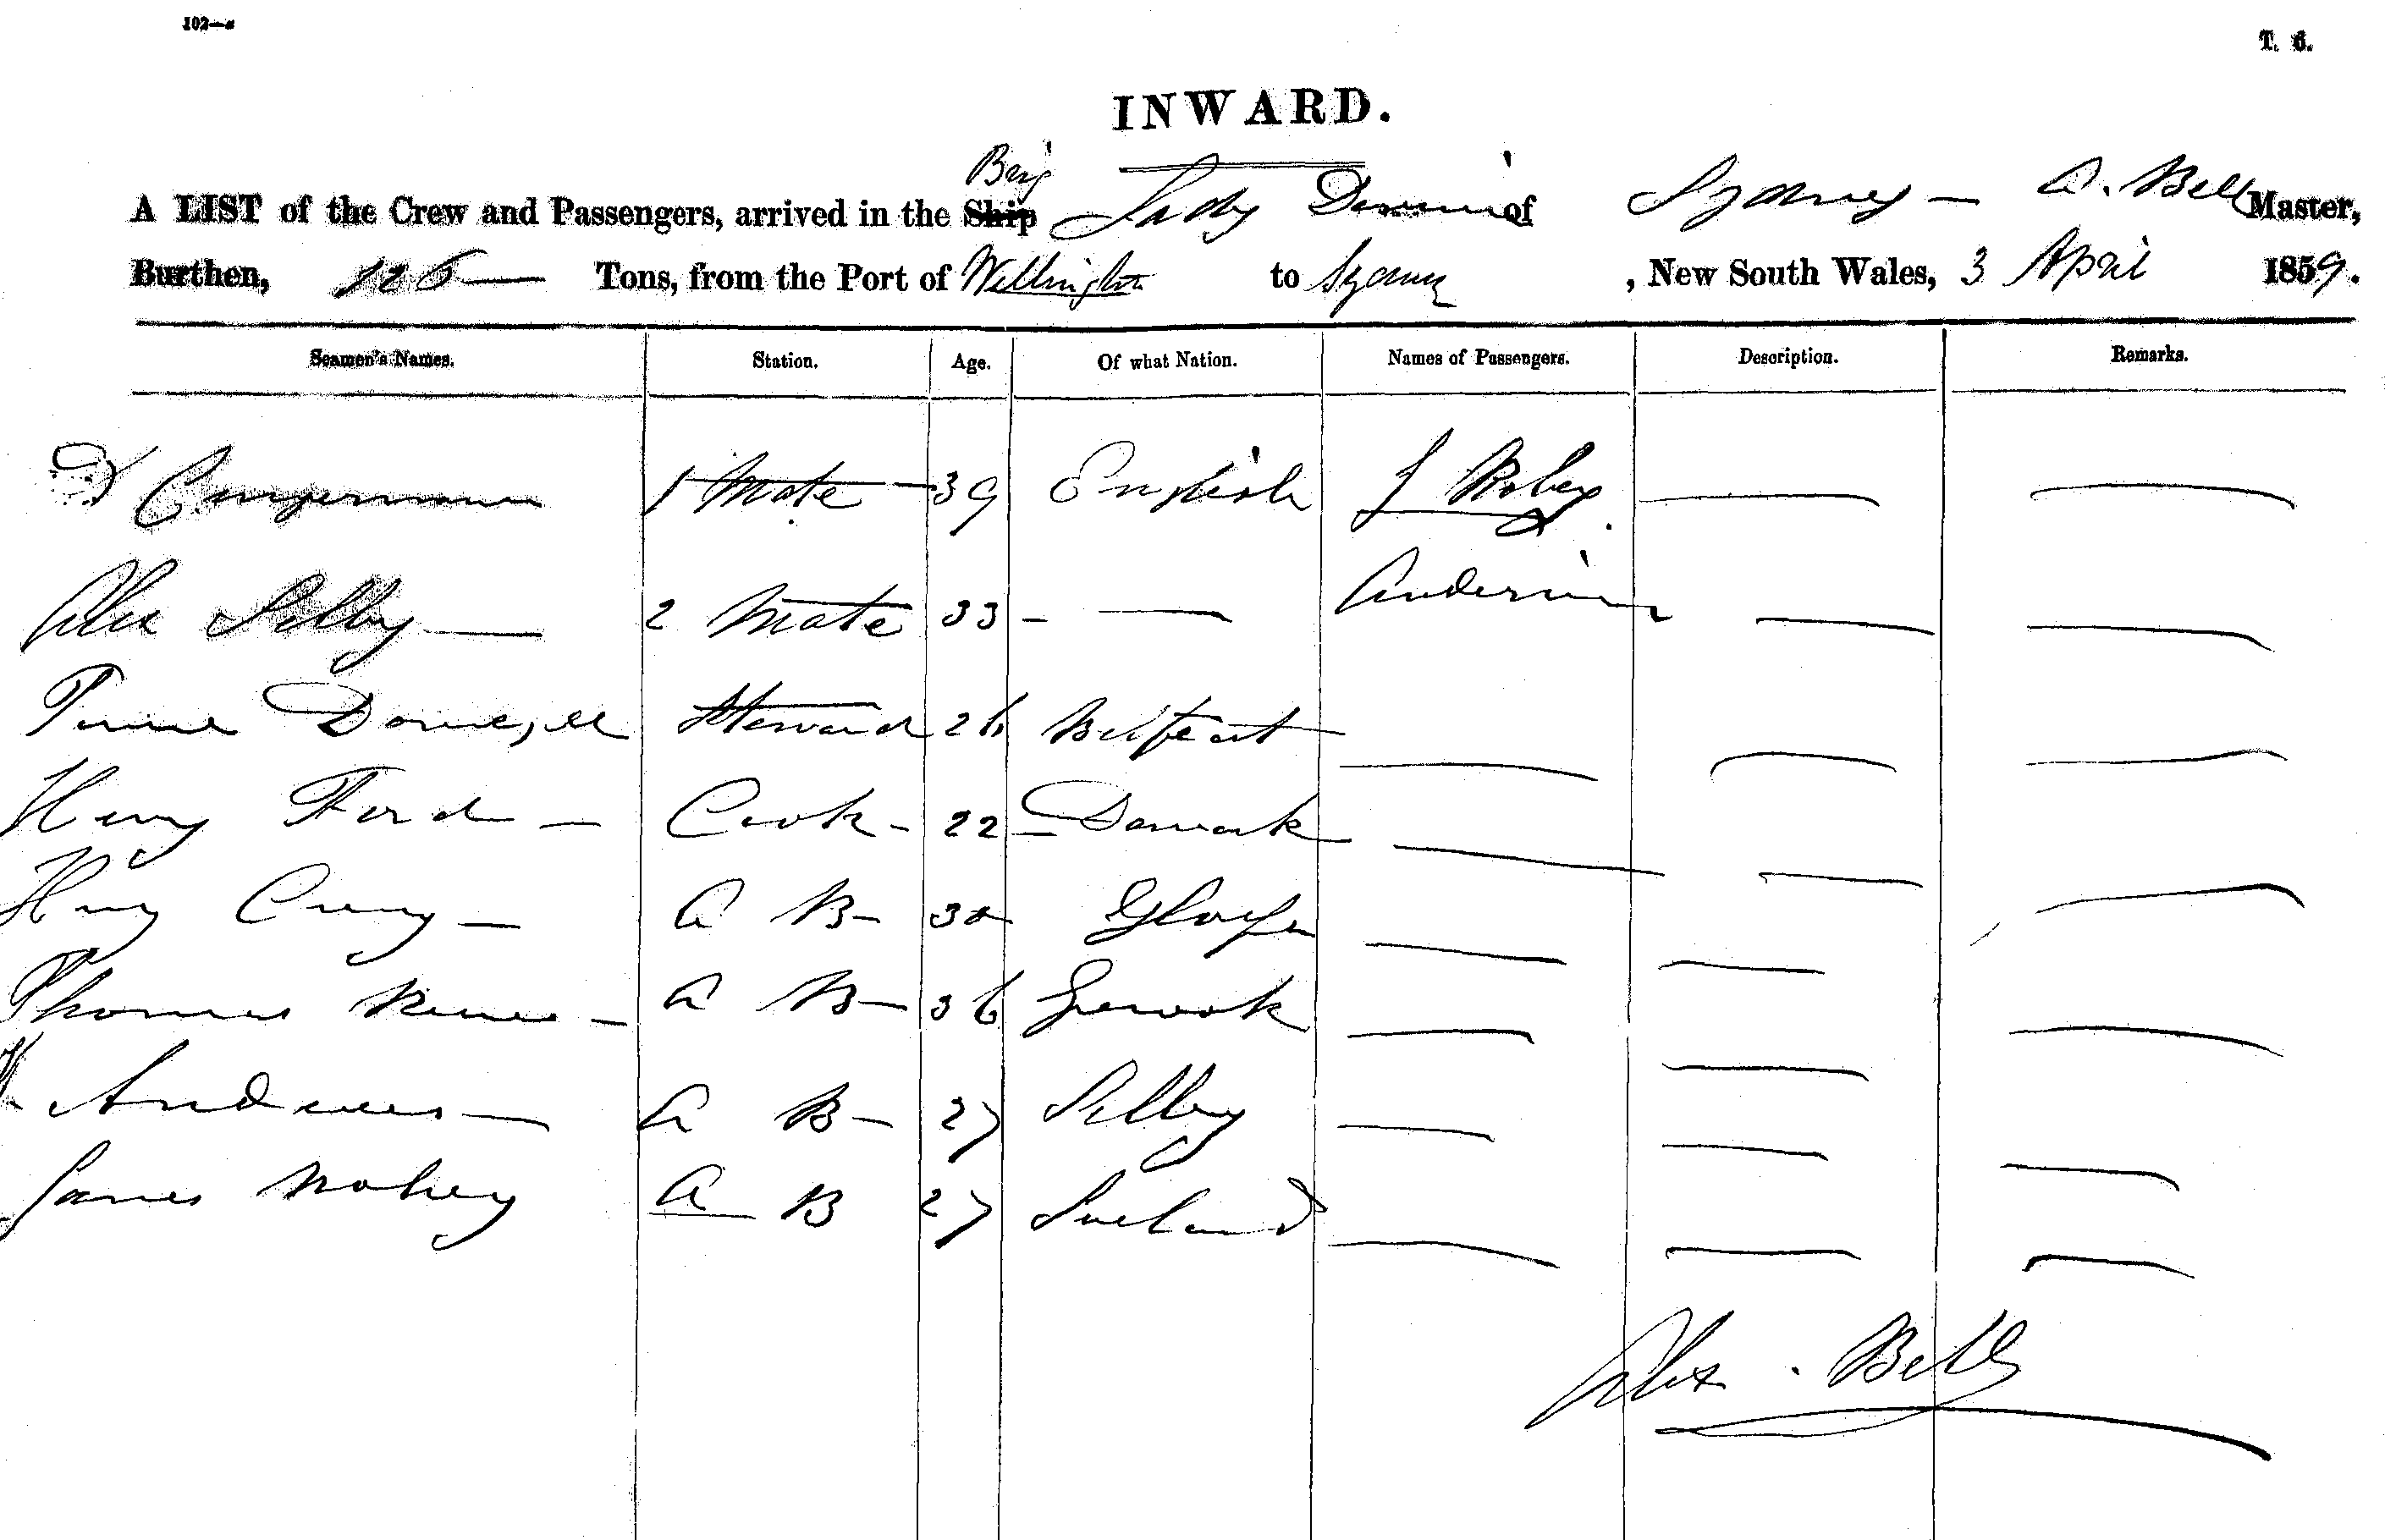 102—a
T. 6.
INWARD.
Brig
A LIST of the Crew and Passengers, arrived in the Ship Lady of Sydney — A. Bell Master,
Burthen, 126 — Tons, from the Port of Wellington to Sydney, New South Wales, 3 April 1859.
Seamen's Names. Station. Age. Of what Nation. Names of Passengers. Description. Remarks.
1 Mate — 39 English J — —
Alex Selby — 2 Mate 33 - — Anderson — —
Steward 26 Belfast — — —
Henry Ford — Cook - 22 — Denmark — — —
Henry — A B — 30 — — —
Thomas — A B — 36 Greenock — — —
Andrews — A B — 27 Selby — — —
James A B 27 — — —
Alex. Bell